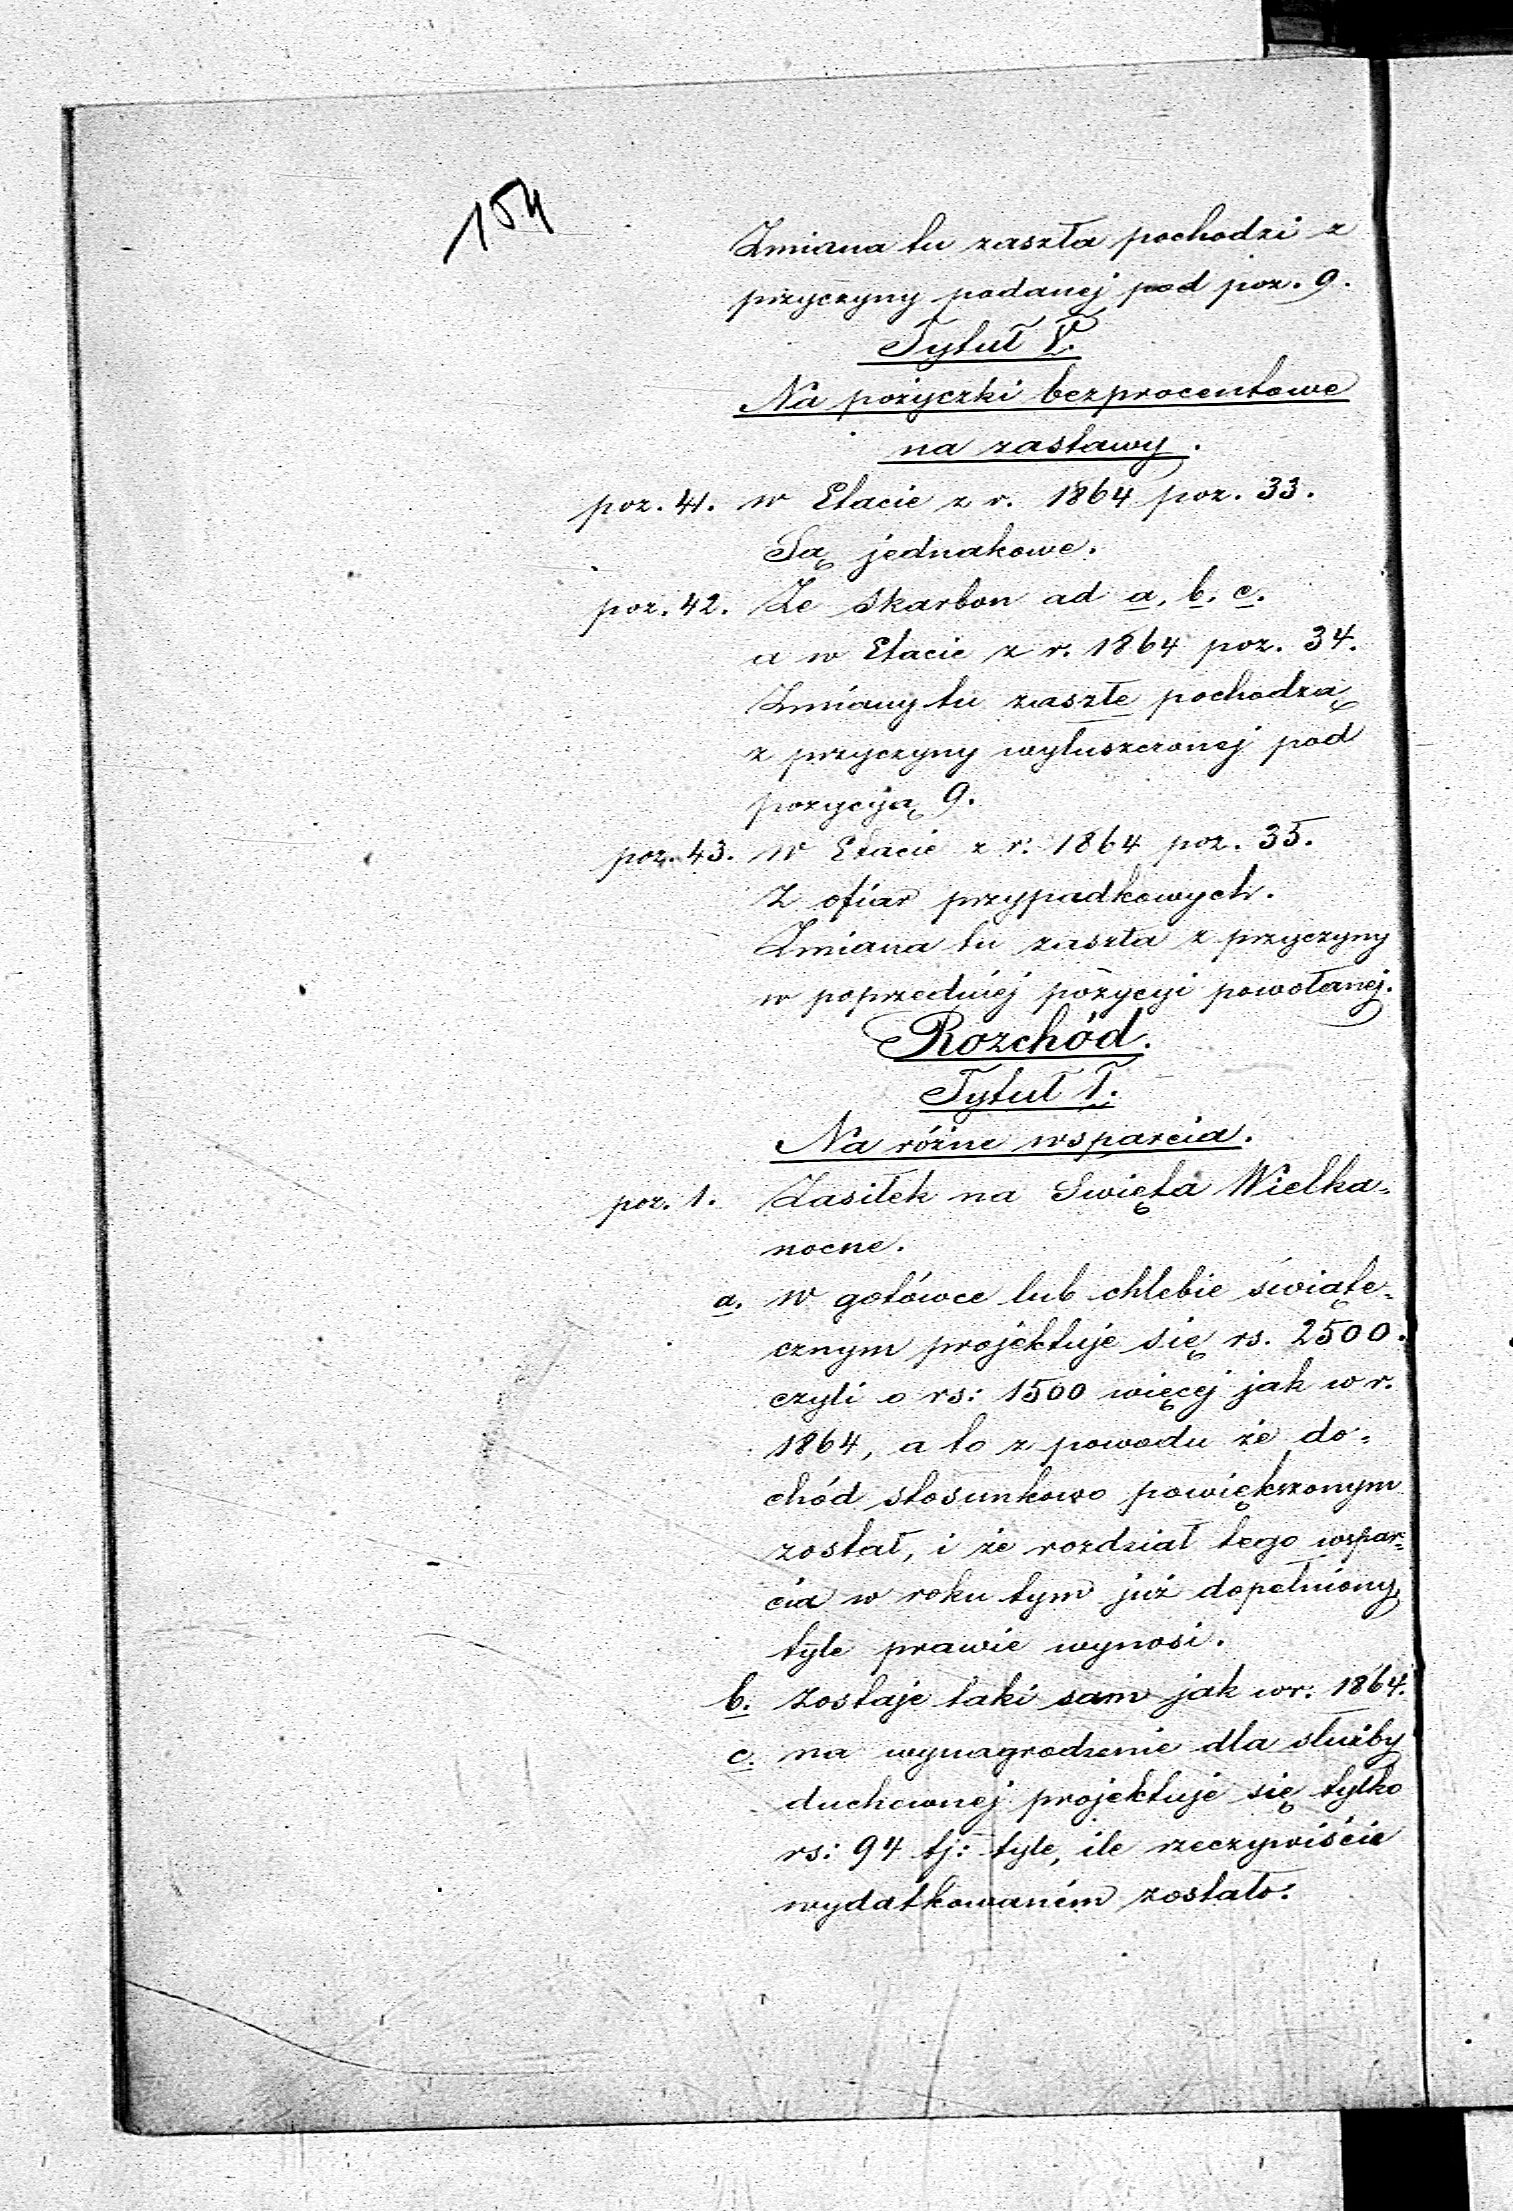 154
Zmiana tu zaszła pochodzi z
przyczyny podanej pod poz. 9.
Tytuł V.
Na pożyczki bezprocentowe
na zastawy.
poz. 41. w Etacie z r. 1864 poz. 33.
Są jednakowe.
poz. 42. Ze skarbon ad a, b. c.
a w Etacie z r. 1864 poz. 34.
Zmiany tu zaszłe pochodzą
z przyczyny wyłuszczonej pod
pozycyją 9.
poz. 43. w Etacie z r: 1864 poz. 35.
Z ofiar przypadkowych.
Zmiana tu zaszła z przyczyny
w poprzedniej pozycyi powołanej.
Rozchód.
Tytuł I.
Na różne wsparcia.
poz. 1. Zasiłek na Swięta Wielka=
nocne.
a. w gotówce lub chlebie świąte=
cznym projektuje się rs. 2500.
czyli o rs: 1500 więcej jak w r.
1864, a to z powodu że do=
chód stosunkowo powiększonym
został, i że rozdział tego wspar=
cia w roku tym już dopełniony,
tyle prawie wynosi.
b. zostaje taki sam jak w r: 1864.
c. na wynagrodzenie dla służby
duchownej projektuje się tylko
rs: 94 tj: tyle, ile rzeczywiście
wydatkowaném zostało.